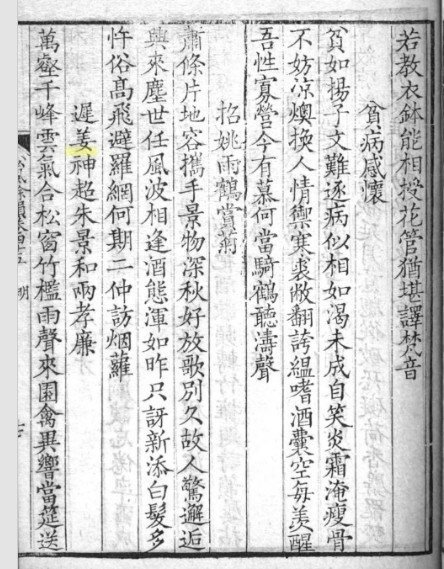 若教衣鉢能相授花管猶堪譯梵音
貧病感懷
貧如楊子文難逐病似相如渴未成自笑炎霜淹瘦骨
不妨凉燠換人情禦寒裘敝翻誇縕嗜酒囊空每羡醒
吾性寡營今有慕何當騎鶴聽濤聲
招姚雨鶴當翁
蕭條片地容攜手景物深秋好放歌別久故人驚邂逅
興來塵世任風波相逢酒態渾如昨只訝新添白髮多
忤俗高飛避羅網何期二仲訪烟蘿
遲姜神超朱景和兩孝廉
萬壑千峰雲氣合松窗竹檻雨聲來園禽異響當筵送
明